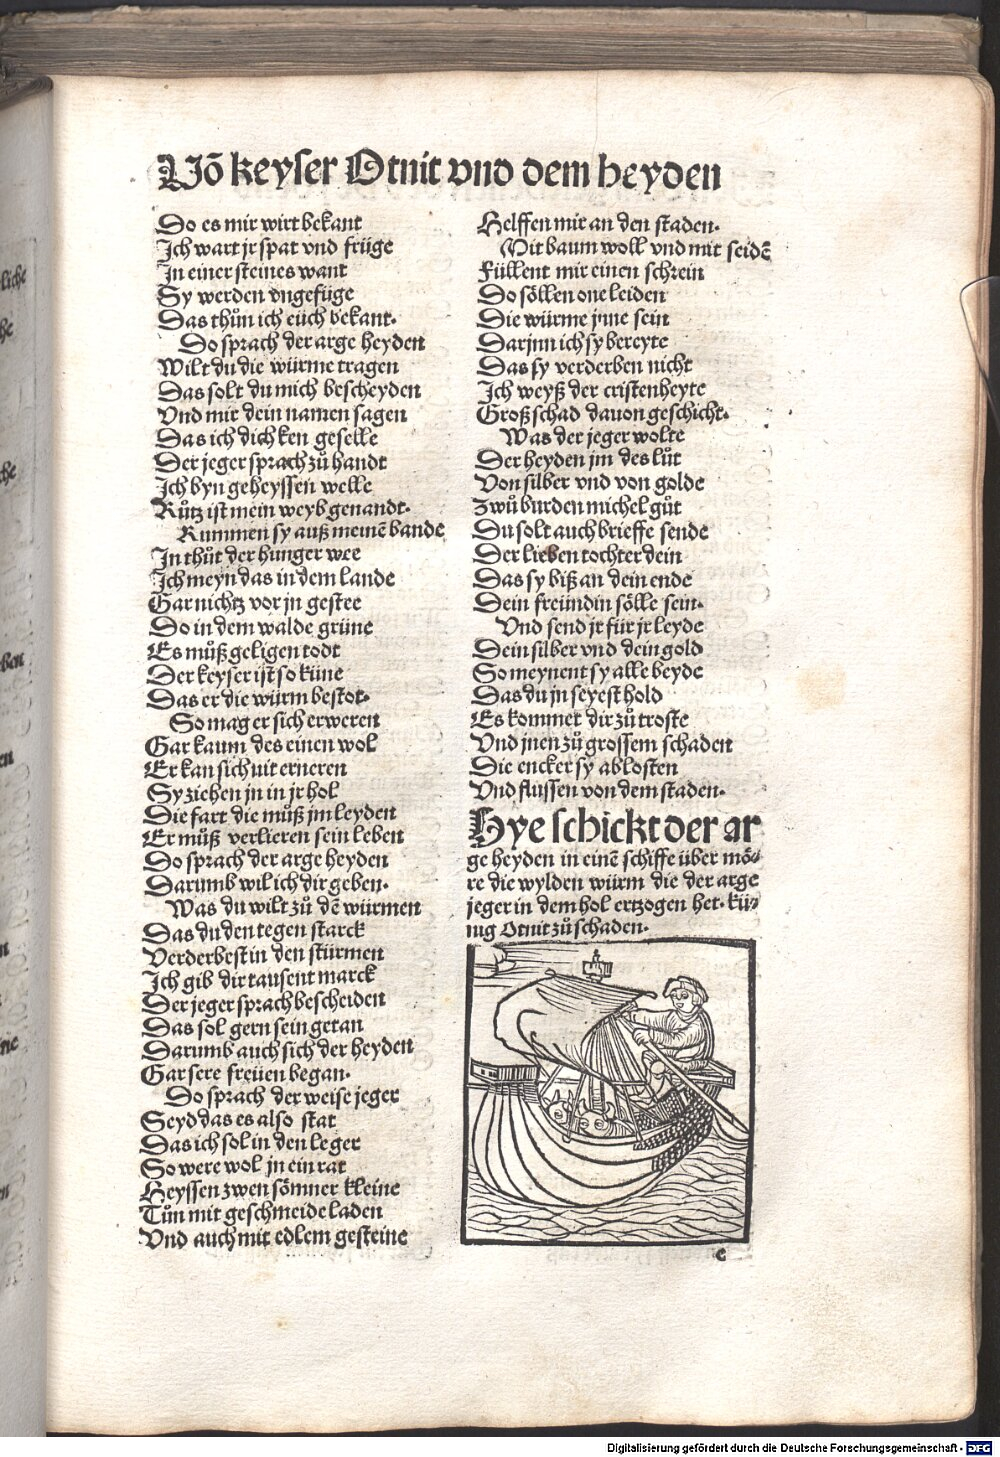 Vō keyser Otnit vnd dem heyden
Do es mir wirt bekant
Ich wart jr spat vnd früge
In einer steines want
Sy werden vngefüge
Das thůn ich eüch bekant.
Do sprach der arge heyden
Wilt du die würme tragen
Das solt du mich bescheyden
Vnd mir dein namen sagen
Das ich dich ken geselle
Der jeger sprach zů handt
Ich byn geheyssen welle
Růtz ist mein weyb genandt.
Kummen sy auß meinē bande
In thůt der hunger wee
Ich meyn das in dem lande
Gar nichtz vor jn gestee
Do in dem walde grüne
Es můß geligen todt
Der keyser ist so küne
Das er die würm bestot.
So mag er sich erweren
Gar kaum des einen wol
Er kan sich nit erneren
Sy ziehen jn in jr hol
Die fart die můß jm leyden
Er můß verlieren sein leben
Do sprach der arge heyden
Darumb wil ich dir geben.
Was du wilt zů dē würmen
Das du den tegen starck
Verderbest in den stürmen
Ich gib dir tausent marck
Der jeger sprach bescheiden
Das sol gern sein getan
Darumb auch sich der heyden
Gar sere freüen began.
Do sprach der weise jeger
Seyd das es also stat
Das ich sol in den leger
So were wol jn ein rat
Heyssen zwen sömner kleine
Tůn mit geschmeide laden
Vnd auch mit edlem gesteine
Helffen mir an den staden.
Mit baum woll vnd mit seidē
Füllent mir einen schrein
Do söllen one leiden
Die würme jnne sein
Darjnn ich sy bereyte
Das sy verderben nicht
Ich weyß der cristenheyte
Groß schad dauon geschicht.
Was der jeger wolte
Der heyden jm des lůt
Von silber vnd von golde
Zwů burden michel gůt
Du solt auch brieffe sende
Der lieben tochter dein
Das sy biß an dein ende
Dein freündin sölle sein.
Vnd send jr für jr leyde
Dein silber vnd dein gold
So meynent sy alle beyde
Das du jn seyest hold
Es kommet dir zů troste
Vnd jnen zů grossem schaden
Die encker sy ablosten
Vnd flussen von dem staden.
Hye schickt der ar
ge heyden in einē schiffe über mö⸗
re die wylden würm die der arge
jeger in dem hol ertzogen het. kü⸗
nig Otnit zů schaden.
e
Digitalisierung gefördert durch die Deutsche Forschungsgemeinschaft - DFG